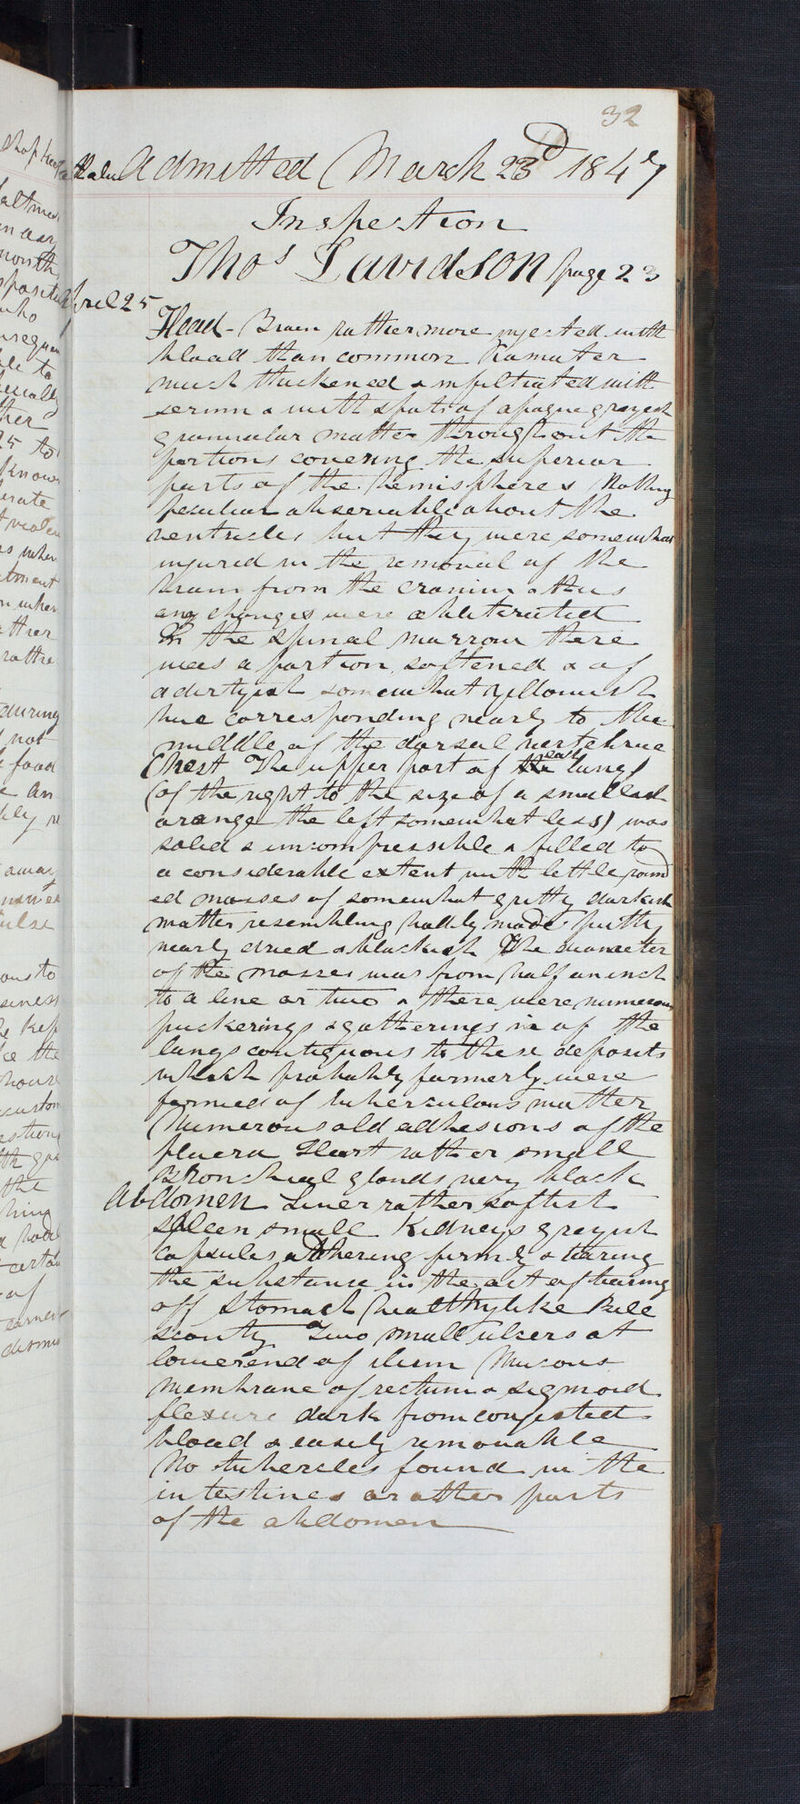 32
Admitted March 23d 1847
Inspection
Thos Davidson page 23
April 25
Head - Brain rather more injected with
blood than common Pia mater
much thickened & infiltrated with
serum & with spots of opaque greyish
grannular matter throughout the
portions covering the superior
parts of the hemispheres Nothing
peculiar observable about the
ventricles but they were somewhat
injured in the removal of the
brain from the cranium & thus
any changes were obliterated
In the spinal marrow there
was a portion softened & of
a dirtyish somewhat yellowish
hue corresponding nearly to the
middle of the dorsal vertebrae
Chest The upper part of each lung
(of the right to the size of a small
orange the left somewhat less) was
solid & incompressible & filled to
a considerable extent with little round
ed masses of somewhat gritty darkish
matter resembling badly made putty
nearly dried & blackish The diameter
of the masses was from half an inch
to a line or two & there were numerous
puckerings & gatherings in of the
lungs contiguous to these deposits
which probably formerly were
formed of tuberculous matter
Numerous old adhesions of the
pluera Heart rather small
Bronchial glands very black
Abdomen Liver rather softish
Spleen small Kidneys greyish
Capsules adhering firmly & tearing
the substance in the act of tearing
off Stomach healthylike Bile
scanty Two small ulcers at
lower end of ilium Mucous
membrane of rectum & sigmoid
flexure dark from congested
blood & easily removable
No tubercles found in the
intestines or other parts
of the abdomen